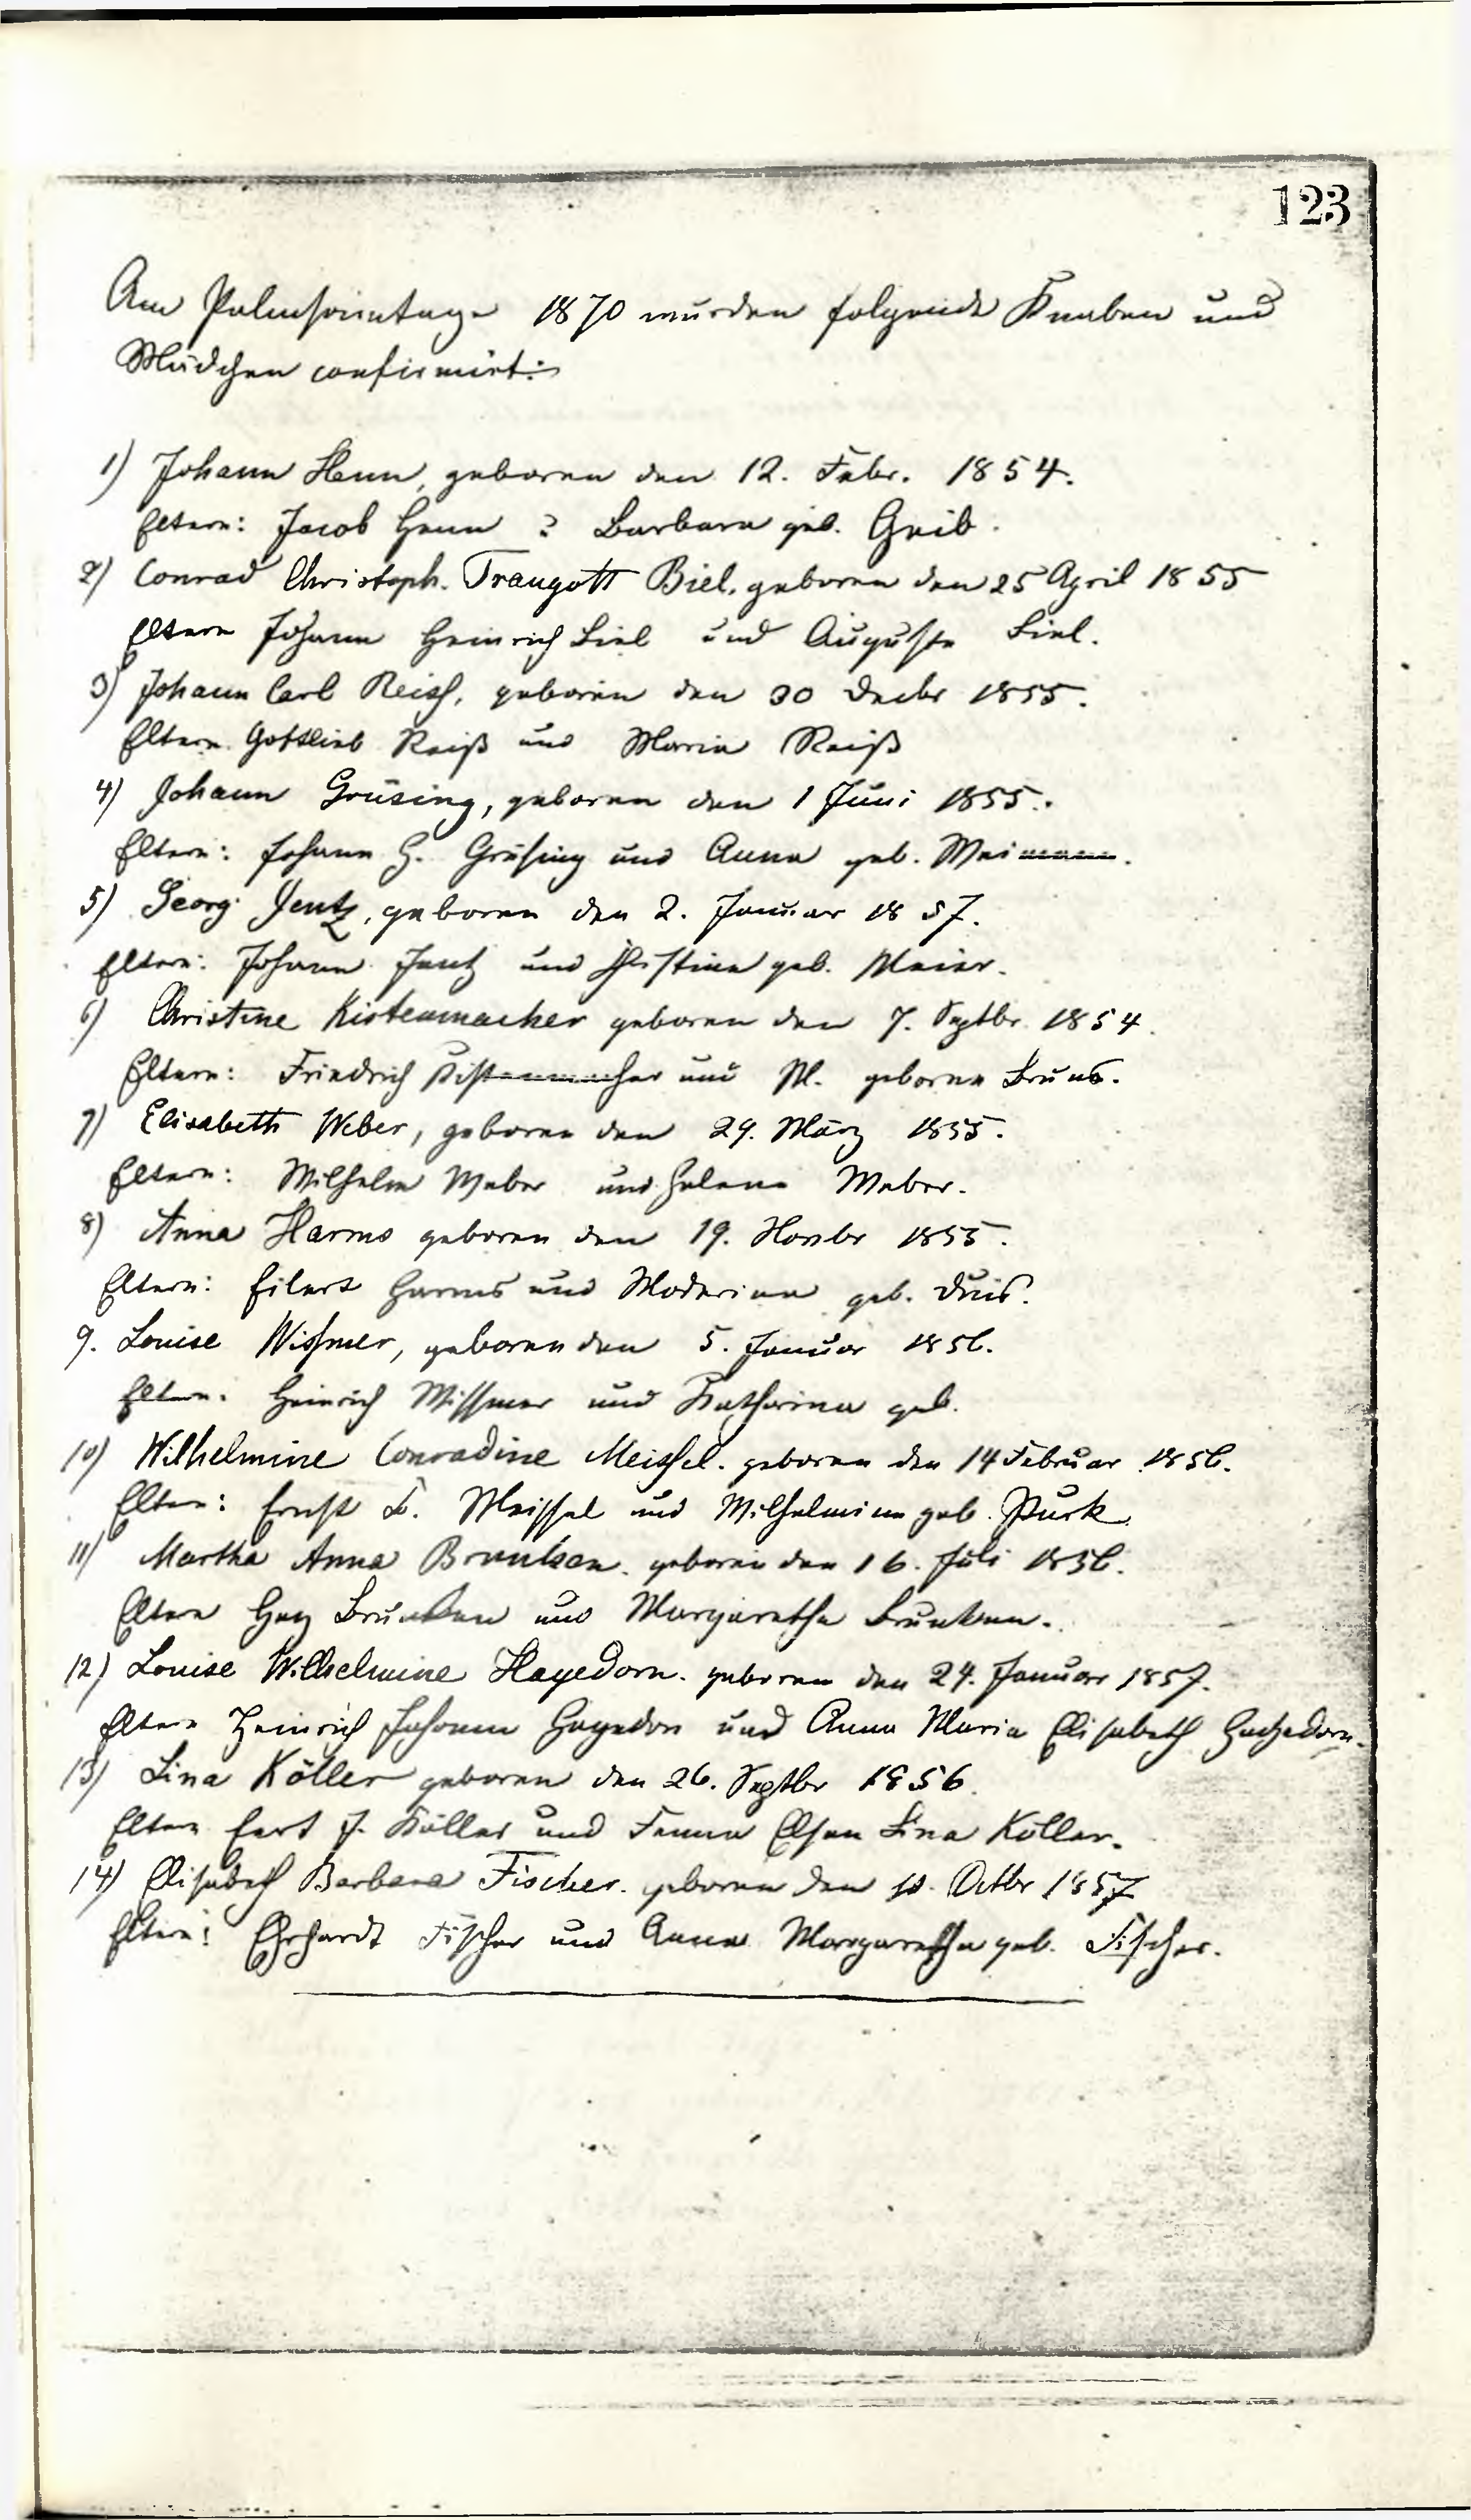 123
Am Palmsonntage 1870 wurden folgende Knaben und
Mädchen confirmirt:
1) Johann Henn, geboren den 12. Febr. 1854.
Eltern: Jacob Henn & Barbara geb. Greib.
2) Conrad Christoph. Traugott Biel. geboren den 25 April 1855
Eltern Johann Heinrich Biel und Auguste Biel.
3) Johann Carl Reiss, geboren den 30 Decbr 1855.
Eltern Gottlieb Reiß und Maria Reiß
4) Johann Grüsing, geboren den 1 Juni 1855.
Eltern: Johann H. Grüsing und Anna geb.
5) Georg Jentz, geboren den 2. Januar 1857.
Eltern: Johann Jentz und Christine geb. Meier.
6) Christine Kistenmacher geboren den 7. Septbr. 1854.
Eltern: Friedrich Kistenmacher und M. geborne Bruns.
7) Elisabeth Weber, geboren den 29. März 1855.
Eltern: Wilhelm Weber und Helene Weber.
8) Anna Harms geboren den 19. Novbr 1855.
Eltern: Eilert Harms und geb. Duis.
9. Louise Wissmer, geboren den 5. Januar 1856.
Eltern: Heinrich Wissmer und Katharina geb.
10) Wilhelmine Conradine Meissel. geboren den 14 Februar 1856.
Eltern: Ernst F. Meissel und Wilhelmine geb. Purk
11) Martha Anna Brunken. geboren den 16. Juli 1856.
Eltern Brunken und Margaretha Brunken.
12) Louise Wilhelmine Hagedorn. geboren den 24. Januar 1857.
Eltern Heinrich Johann Hagedorn und Anna Maria Elisabeth Hagedorn.
13) Lina Köller geboren den 26. Septbr 1856.
Eltern J. Köller und Lina Köller.
14) Elisabeth Barbara Fischer. geboren den 10. Octbr 1857
Eltern: Ehrhardt Fischer und Anna Margaretha geb. Fischer.